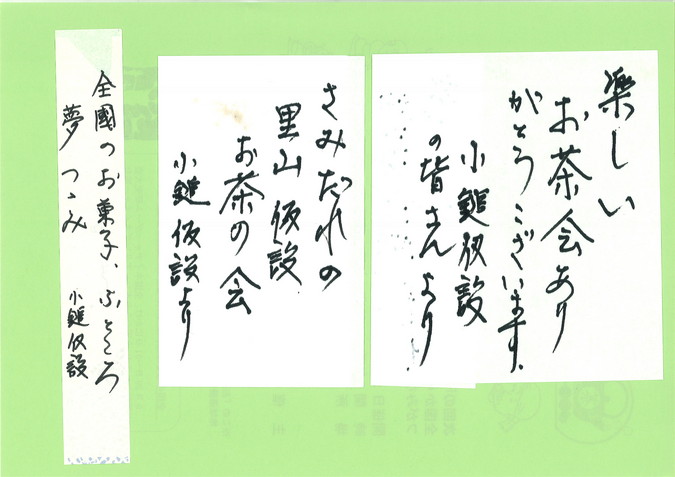 楽しい
お茶会あり
がとうございます。
小鎚仮設
の皆さんより
さみだれの
里山仮設
お茶の会
小鎚仮設より
全國のお菓子、ふところ
夢つゝみ
小鎚仮設